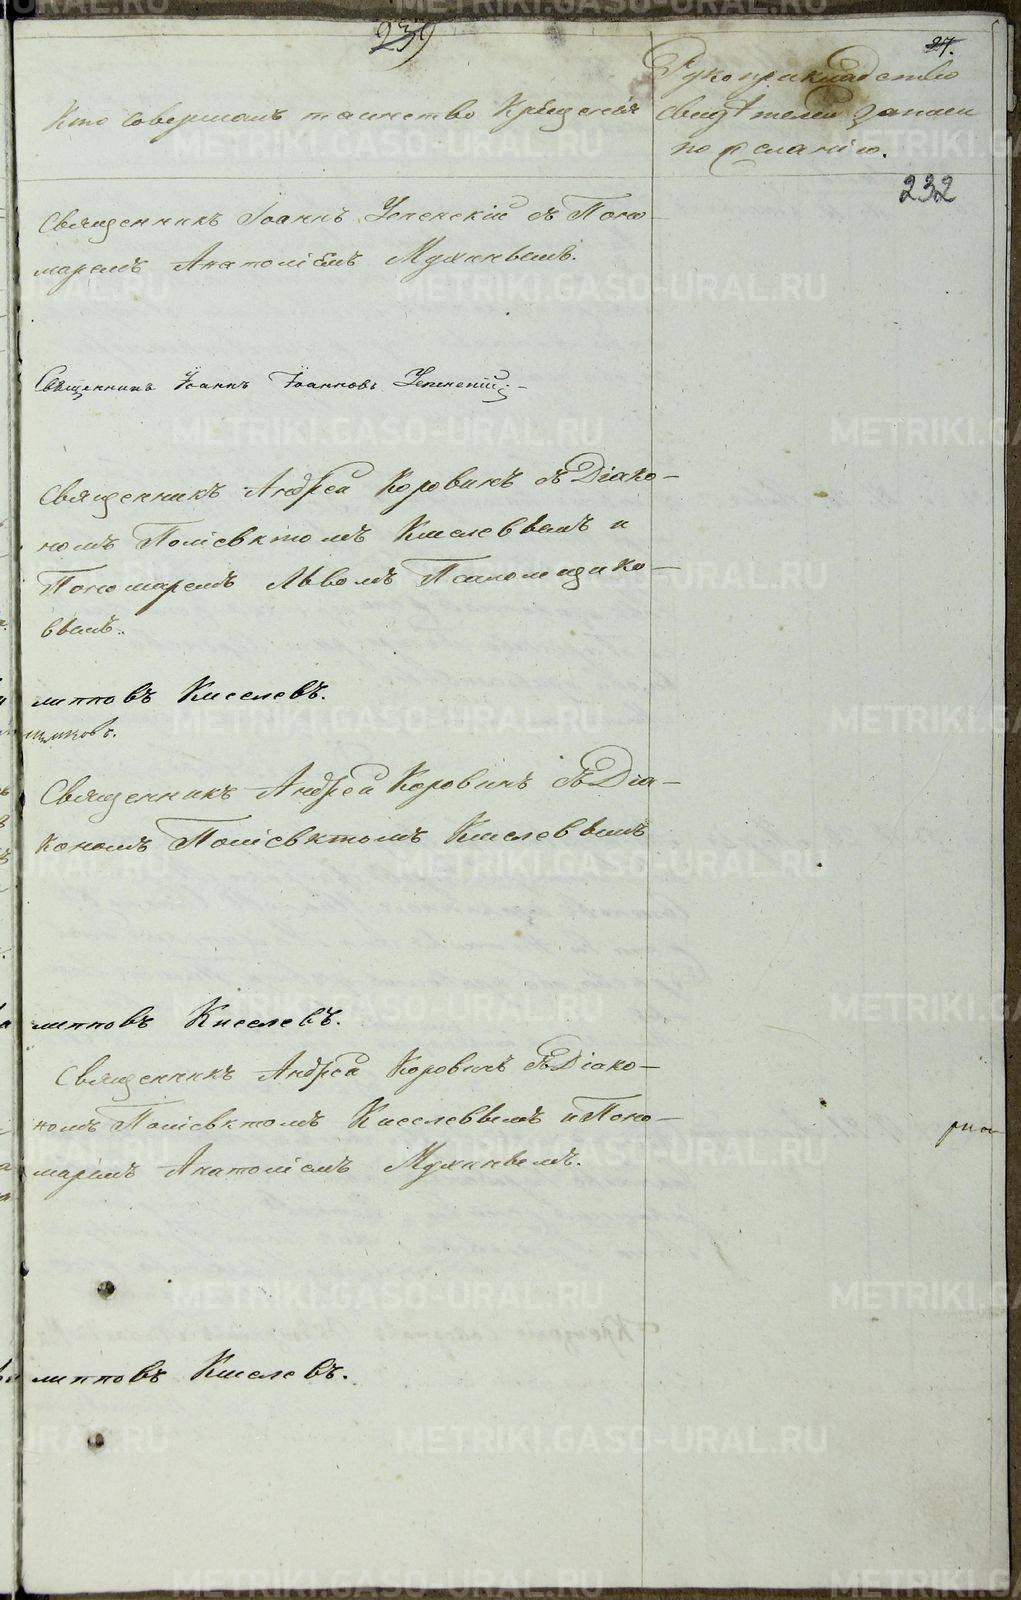 239
27.
Кто совершалъ таинство Крещенія
Рукоприкладство
свидѣтелей записи
по желанію.
232
Священникъ Іоаннъ Успенскій съ Поно-
маремъ Анатоліемъ
Священникъ Іоаннъ Іоанновъ Успенскій.-
Священникъ Андрей Коровинъ съ Діако-
номъ Поліевктомъ Киселевымъ и
Пономаремъ Львомъ
вымъ.
липповъ Киселевъ.
Священникъ Андрей Коровинъ съ Діа-
кономъ Поліевктомъ Киселевымъ
липповъ Киселевъ.
Священникъ Андрей Коровинъ съ Діако-
номъ Поліевктомъ Киселевымъ и Поно-
маремъ Анатоліемъ
липповъ Киселевъ.
METRIKI.GASO-URAL.RU